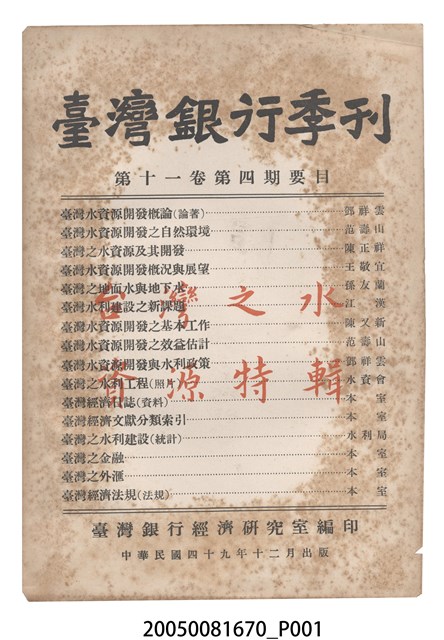 臺灣銀行季刊
第十一卷第四期要目
臺灣水資源開發概論(論著)……鄧祥雲
臺灣水資源開發之自然環境……范壽山
臺灣之水資源及其開發……陳正祥
臺灣水資源開發概況與展望……王敬宜
臺灣之地面水與地下水……孫友蘭
臺灣水利建設之新課題……江漢
臺灣水資源開發之基本工作……陳又新
臺灣水資源開發之效益估計……范壽山
臺灣水資源開發與水利政策……鄧祥雲
臺灣之水利工程(照片)……水資會
臺灣經濟日誌(資料)……本室
臺灣經濟文獻分類索引……本室
臺灣之水利建設(統計)……水利局
臺灣之金融……本室
臺灣之外滙……本室
臺灣經濟法規(法規)……本室
台灣之水
資源特輯
臺灣銀行經濟研究室編印
中華民國四十九年十二月出版
20050081670_P001